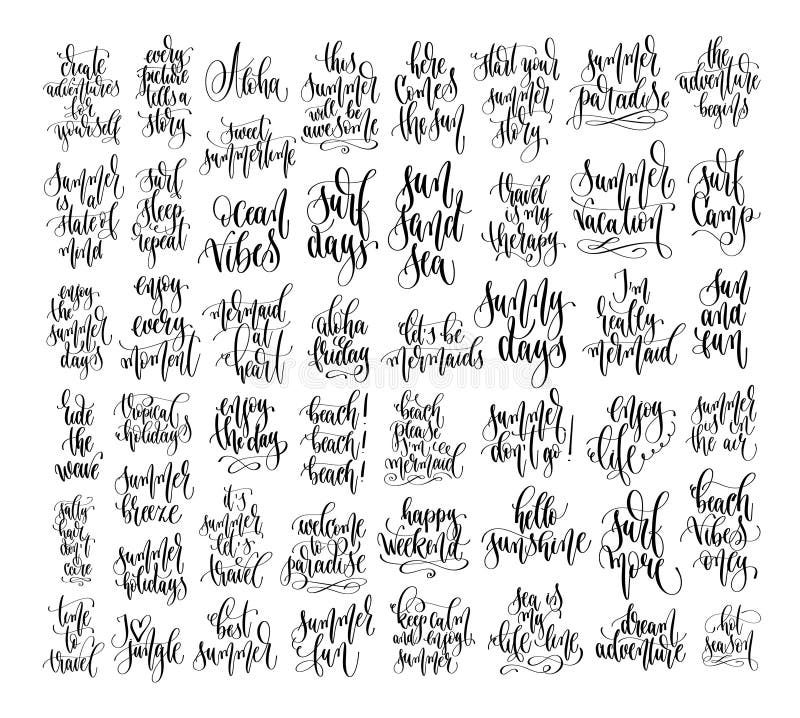 create
adventures
for
yourself
every
picture
tells a
story
Aloha
sweet
summertime
this
summer
will be
awesome
here
comes
the sun
start your
summer
story
summer
paradise
the
adventure
begins
Summer
is a
state of
mind
surf
sleep
repeat
ocean
vibes
surf
days
sun
sand
sea
travel
is my
therapy
summer
vacation
surf
camp
enjoy
the
summer
days
enjoy
every
moment
mermaid
at
heart
aloha
friday
let's be
mermaids
sunny
days
I'm
really
mermaid
sun
and
fun
ride
the
wave
tropical
holidays
enjoy
the day
beach!
beach!
beach!
beach
please
I'm
mermaid
summer
don't go!
enjoy
life
summer
is in
the air
summer
breeze
salty
hair
don't
care
summer
holidays
it's
summer
let's
travel
welcome
to
paradise
happy
weekend
hello
sunshine
surf
more
beach
vibes
only
time
to
travel
I ♥
jungle
best
summer
summer
fun
keep calm
and enjoy
summer
sea is
my
life line
dream
adventure
hot
season